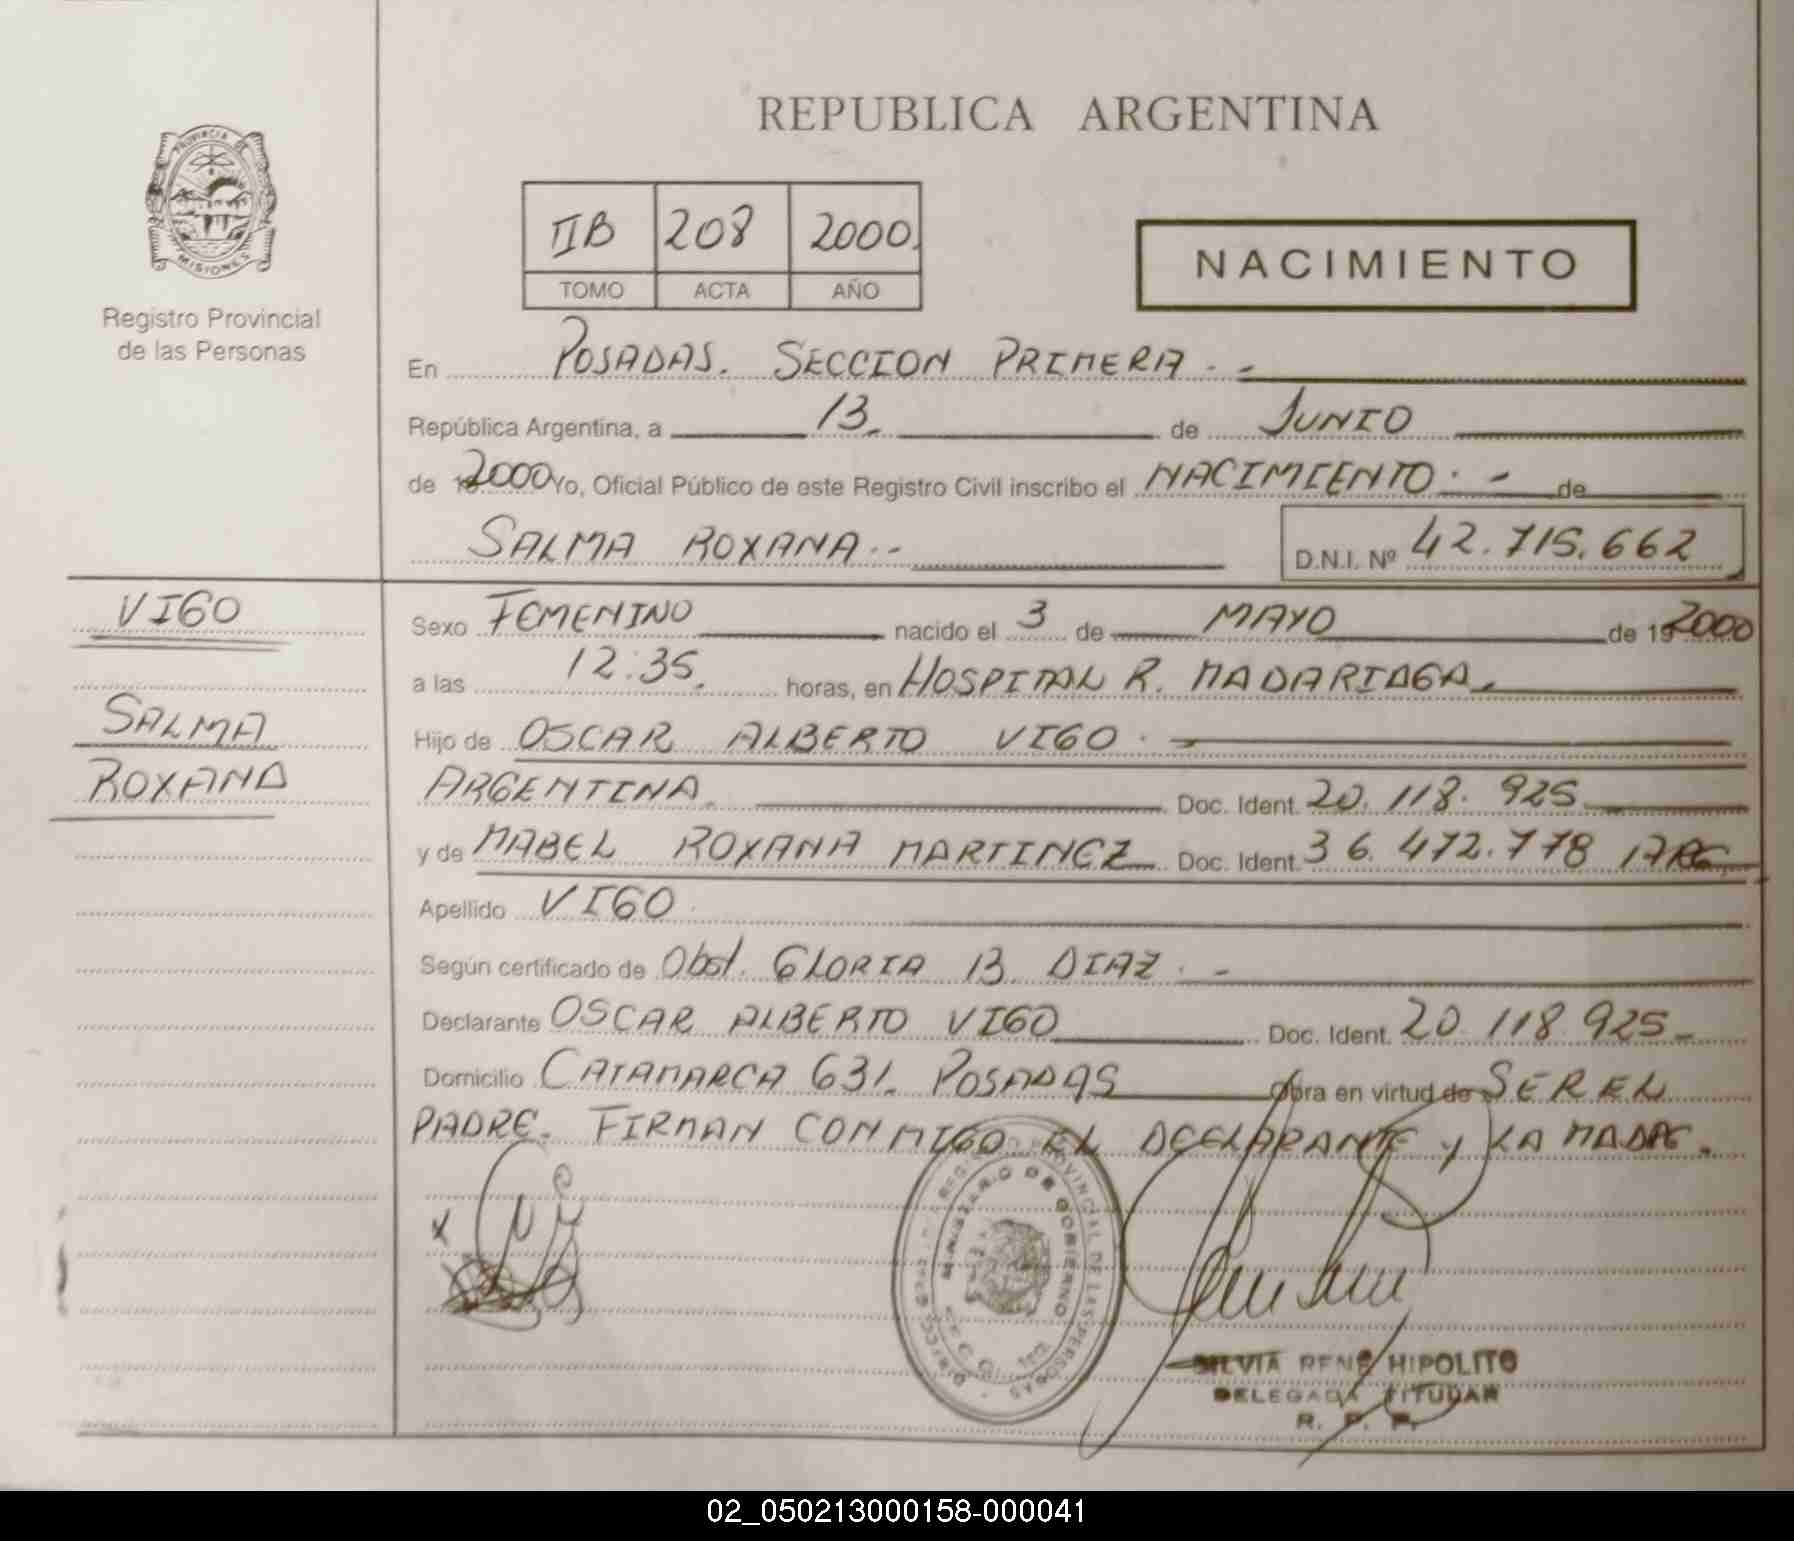 REPUBLICA ARGENTINA
PROVINCIA DE MISIONES
Registro Provincial
de las Personas
IIB 208 2000
TOMO ACTA AÑO
NACIMIENTO
En POSADAS. SECCION PRIMERA.-
República Argentina, a 13 de JUNIO
de 2000 Yo, Oficial Público de este Registro Civil inscribo el NACIMIENTO.- de
SALMA ROXANA.- D.N.I. Nº 42.715.662
VIGO
SALMA
ROXANA
Sexo FEMENINO nacido el 3 de MAYO de 19 2000
a las 12:35. horas, en HOSPITAL R. MADARIAGA.
Hijo de OSCAR ALBERTO VIGO.
ARGENTINA. Doc. Ident. 20.118.925
y de MABEL ROXANA MARTINEZ Doc. Ident. 36.472.778 ARG
Apellido VIGO.
Según certificado de Obst. GLORIA B. DIAZ.-
Declarante OSCAR ALBERTO VIGO Doc. Ident. 20.118.925-
Domicilio CATAMARCA 631. POSADAS Obra en virtud de SER EL
PADRE. FIRMAN CONMIGO EL DECLARANTE y LA MADRE.
REGISTRO PROVINCIAL DE LAS PERSONAS
MINISTERIO DE GOBIERNO
SILVIA RENE HIPOLITO
DELEGADA TITULAR
R. P. P.
02_050213000158-000041